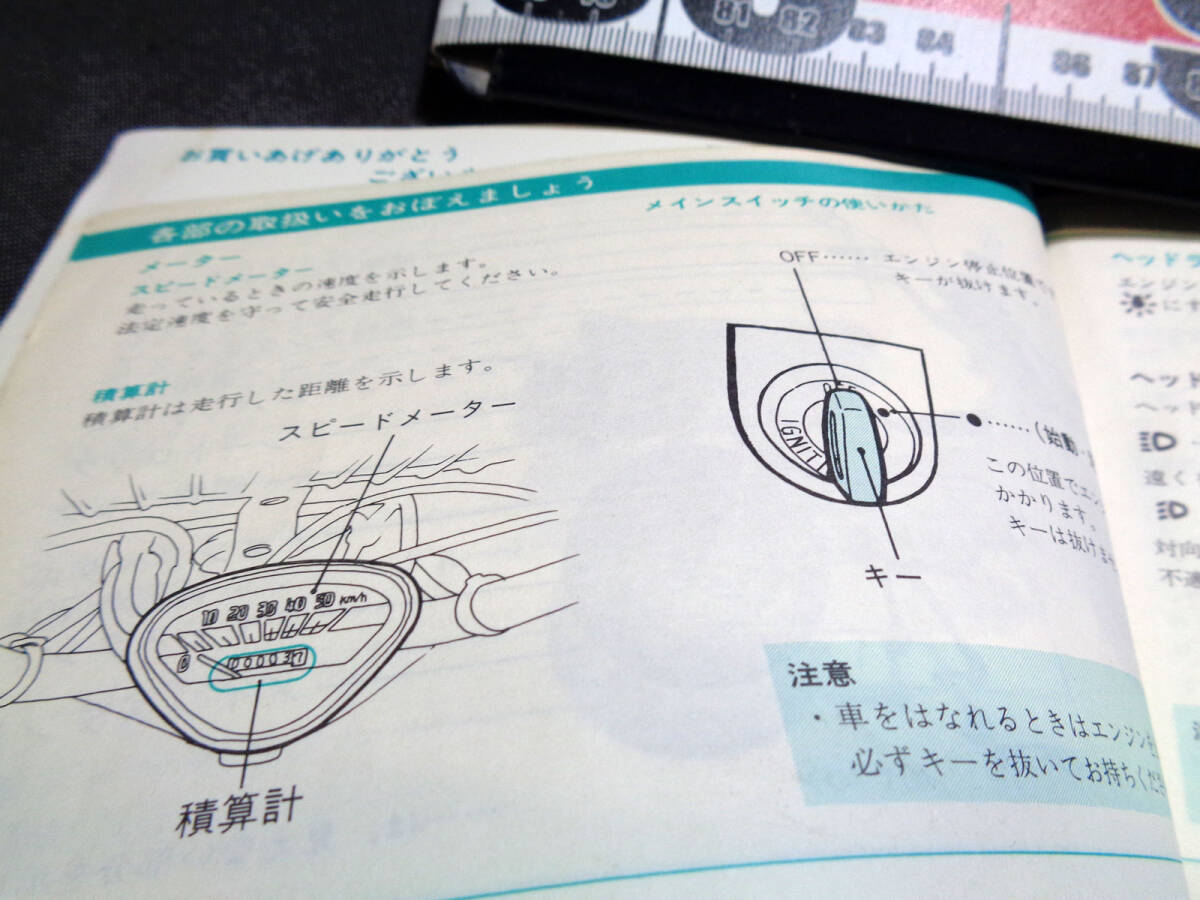 81 82 83 84 86 87
お買いあげありがとう
各部の取扱いをおぼえましょう
メーター
スピードメーター
走っているときの速度を示します。
法定速度を守って安全走行してください。
積算計
積算計は走行した距離を示します。
スピードメーター
10 20 30 40 50 km/h
0
000037
積算計
メインスイッチの使いかた
OFF…… エンジン停止位置
キーが抜けます。
OFF
IGNIT
●……(始動・
この位置でエン
かかります。
キーは抜けま
キー
注意
・車をはなれるときはエンジン
必ずキーを抜いてお持ちくだ
ヘッドラ
エンジン
にす
ヘッド
ヘッド
遠く
対向
不適